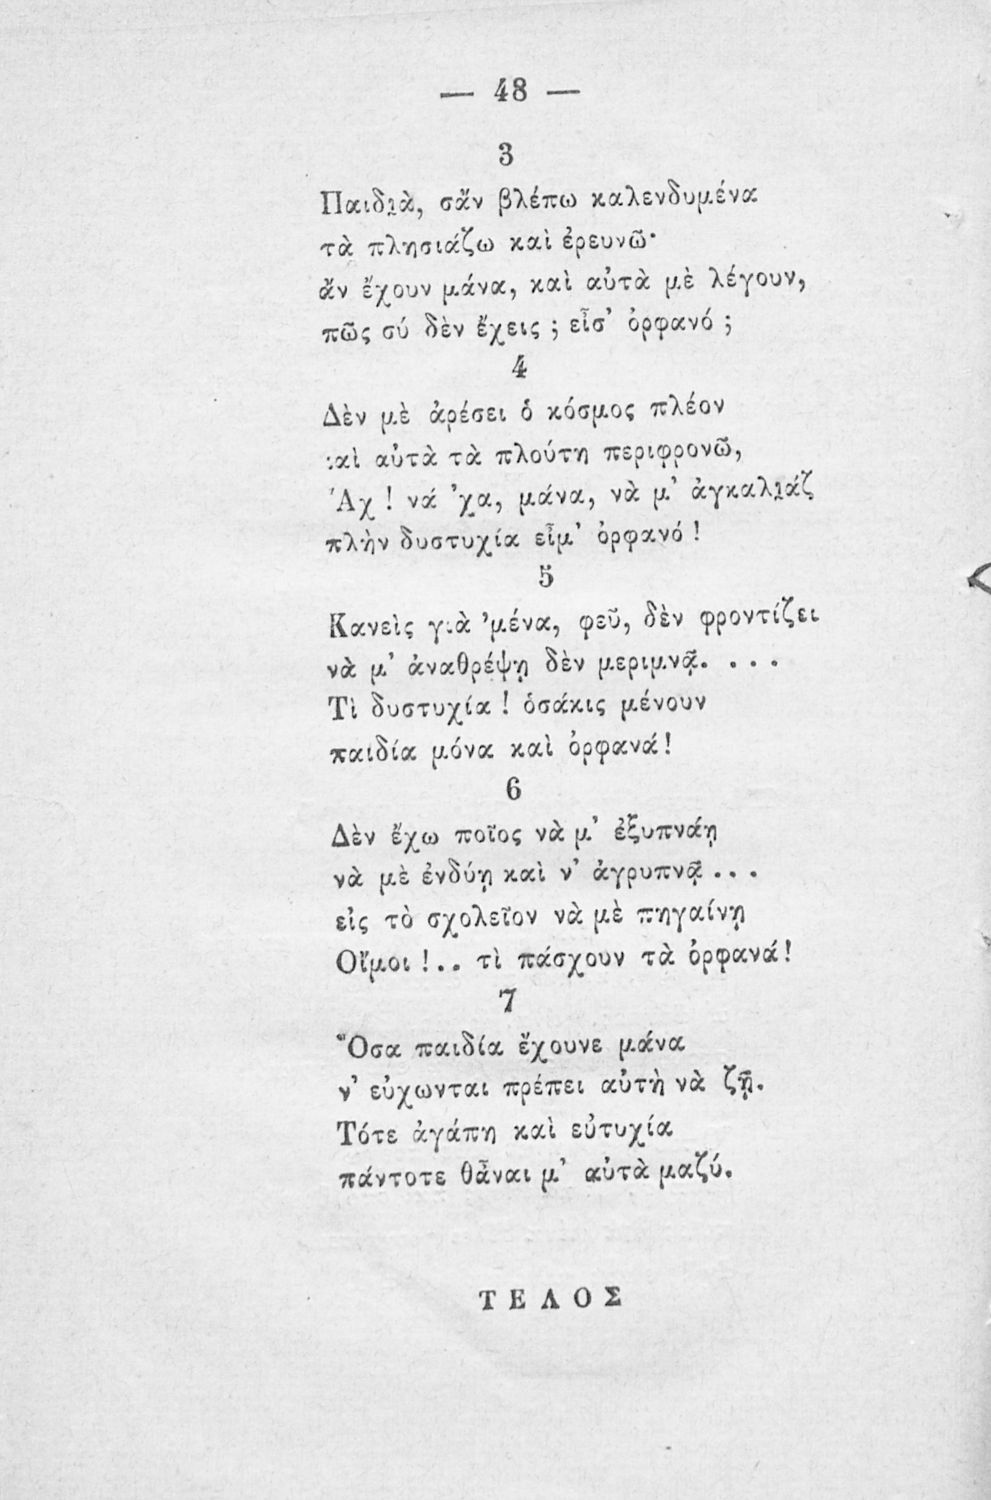 — 48 —
3
Παιδιὰ, σἂν βλέπω καλενδυμένα
τὰ πλησιάζω καὶ ἐρευνῶ·
ἂν ἔχουν μάνα, καὶ αὐτὰ μὲ λέγουν,
πῶς σύ δὲν ἔχεις ; εἶσ’ ὀρφανό ;
4
Δὲν μὲ ἀρέσει ὁ κόσμος πλέον
καὶ αὐτὰ τὰ πλούτη περιφρονῶ,
Ἄχ ! νά ’χα, μάνα, νὰ μ’ ἀγκαλιάζ
πλὴν δυστυχία εἶμ’ ὀρφανό !
5
Κανεὶς γιὰ ’μένα, φεῦ, δὲν φροντίζει
νὰ μ’ ἀναθρέψῃ δὲν μεριμνᾷ. . . .
Τὶ δυστυχία ! ὁσάκις μένουν
παιδία μόνα καὶ ὀρφανά!
6
Δὲν ἔχω ποῖος νὰ μ’ ἐξυπνάῃ
νὰ μὲ ἐνδύῃ καὶ ν’ ἀγρυπνᾷ . . .
εἰς τὸ σχολεῖον νὰ μὲ πηγαίνῃ
Οἴμοι !.. τὶ πάσχουν τὰ ὀρφανά!
7
Ὅσα παιδία ἔχουνε μάνα
ν’ εὐχωνται πρέπει αὐτὴ νὰ ζῇ.
Τότε ἀγάπη καὶ εὐτυχία
πάντοτε θἆναι μ’ αὐτὰ μαζύ.
ΤΕΛΟΣ